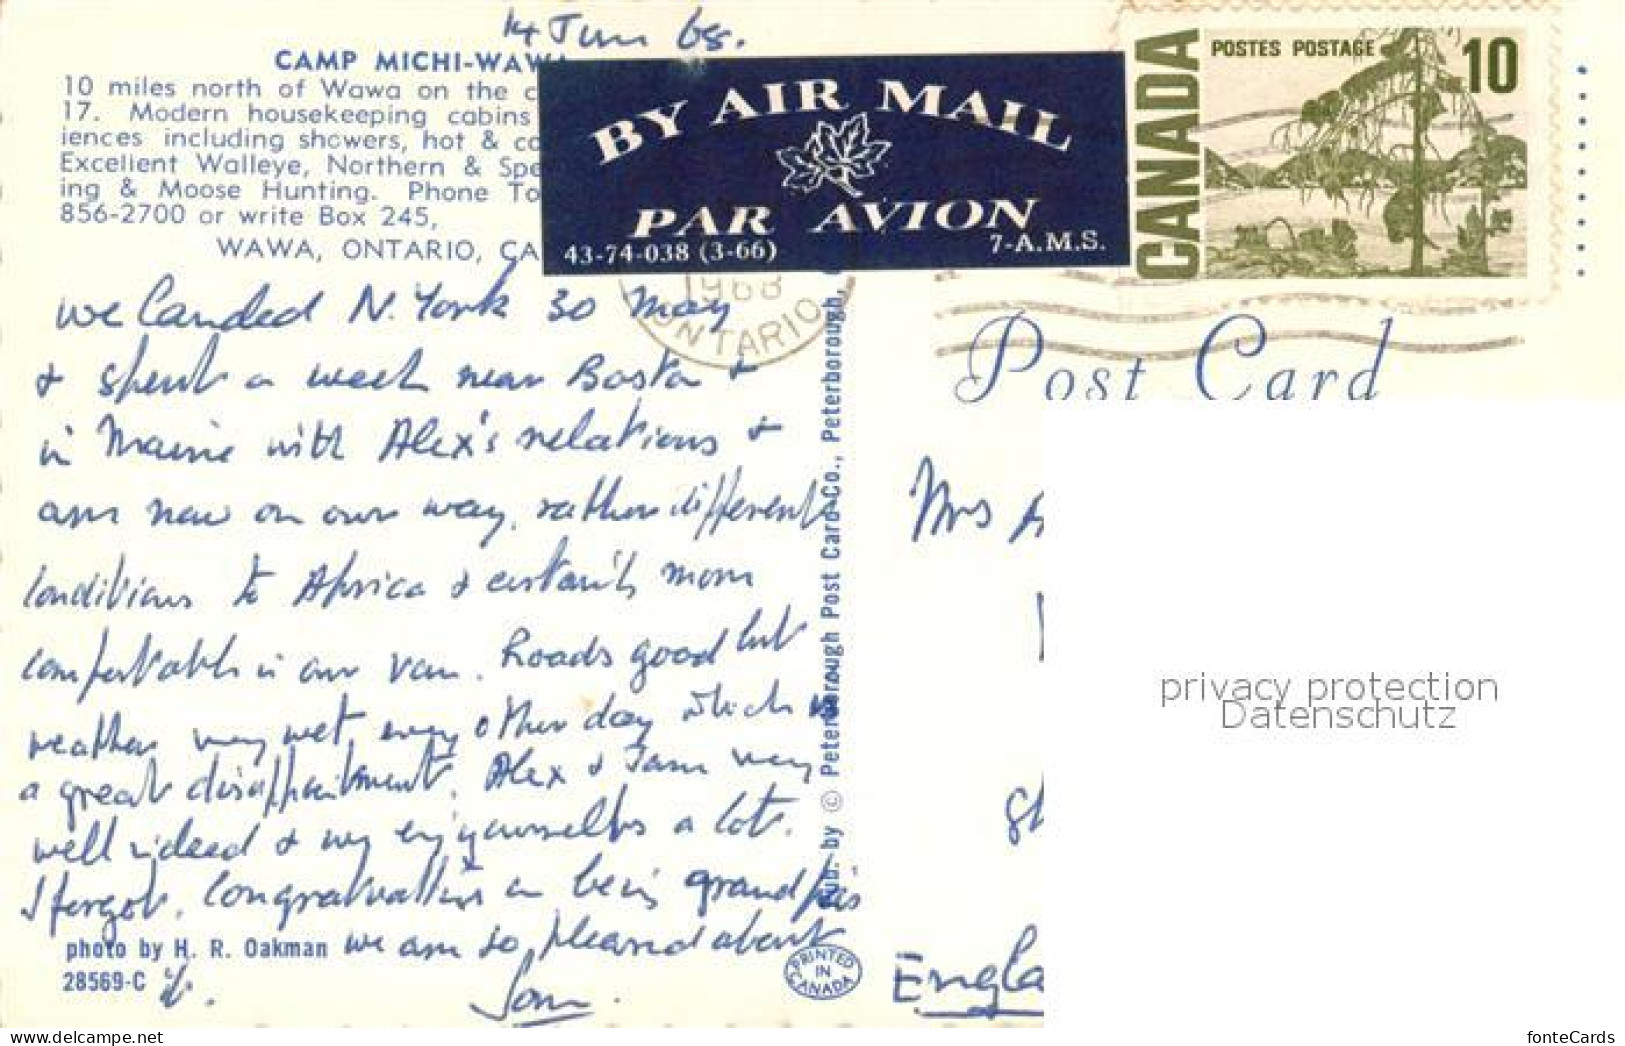 14 Jun 68.
CAMP MICHI-WAWA
10 miles north of Wawa on the
17. Modern housekeeping cabins
iences including showers, hot & co
Excellent Walleye, Northern & Spe
ing & Moose Hunting. Phone To
856-2700 or write Box 245,
WAWA, ONTARIO, CA
BY AIR MAIL
PAR AVION
43-74-038 (3-66) 7-A.M.S.
CANADA
POSTES POSTAGE 10
1968
ONTARIO
Post Card
we landed N. York 30 May
& spent a week near Boston &
in Maine with Alex's relations &
are now on our way, rather different
conditions to Africa & certainly more
comfortable in our van. Roads good but
weather very wet every other day which is
a great disappointment. Alex & Sam very
well indeed & my enjoy ourselves a lot.
I forgot, congratulations on being grand
we are so pleased about
it.
photo by H. R. Oakman
28569-C
Pub. by © Peterborough Post Card Co., Peterborough,
PRINTED IN CANADA
Mrs A
England
privacy protection
Datenschutz
fonteCards